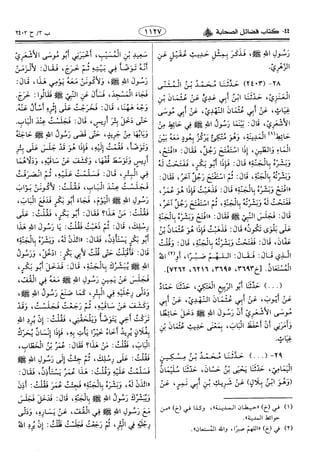 ٤٤- كتاب فضائل الصحابة
١١٢٧
ب ٣/ ح ٢٤٠٣
رسول الله ﷺ، فذكر بمثل حديث عقيل عن
الزهري.
٢٨- (٢٤٠٣) حدثنا محمد بن المثنى
العنزي: حدثنا ابن أبي عدي عن عثمان بن
غياث، عن أبي عثمان النهدي، عن أبي موسى
الأشعري قال: بينما رسول الله ﷺ في حائط من
حائط(١) المدينة، وهو متكئ يركز بعود معه بين
الماء والطين، إذا استفتح رجل، فقال: «افتح،
وبشره بالجنة» قال: فإذا أبو بكر، ففتحت له
وبشرته بالجنة، قال: ثم استفتح رجل آخر، فقال:
«افتح وبشره بالجنة» قال: فذهبت فإذا هو عمر،
ففتحت له وبشرته بالجنة، ثم استفتح رجل آخر،
قال: فجلس النبي ﷺ فقال: «افتح وبشره بالجنة
على بلوى تكون» قال: فذهبت فإذا هو عثمان بن
عفان، قال: ففتحت وبشرته بالجنة، قال: وقلت
الذي قال، فقال: اللهم صبرا، أو(٢) الله
المستعان. [خ: ٣٦٩٣، ٣٦٩٥، ٦٢١٦، ٧٢٦٢]
(...) حدثنا أبو الربيع العتكي: حدثنا حماد
عن أيوب، عن أبي عثمان النهدي، عن أبي
موسى الأشعري أن رسول الله ﷺ دخل حائطا
وأمرني أن أحفظ الباب، بمعنى حديث عثمان بن
غياث.
٢٩- (...) حدثنا محمد بن مسكين
اليمامي: حدثنا يحيى بن حسان: حدثنا سليمان
(وهو ابن بلال) عن شريك بن أبي نمر، عن
سعيد بن المسيب، أخبرني أبو موسى الأشعري
أنه توضأ في بيته ثم خرج، فقال: لألزمن
رسول الله ﷺ، ولأكونن معه يومي هذا، قال:
فجاء المسجد، فسأل عن النبي ﷺ فقالوا: خرج.
وجه ههنا، قال: فخرجت على إثره أسأل عنه،
حتى دخل بئر أريس، قال: فجلست عند الباب،
وبابها من جريد، حتى قضى رسول الله ﷺ حاجته
وتوضأ، فقمت إليه، فإذا هو قد جلس على بئر
أريس وتوسط قفها، وكشف عن ساقيه، ودلاهما
في البئر، قال: فسلمت عليه، ثم انصرفت
فجلست عند الباب، فقلت: لأكونن بواب
رسول الله ﷺ اليوم، فجاء أبو بكر فدفع الباب،
فقلت: من هذا؟ فقال: أبو بكر، فقلت: على
رسلك، قال: ثم ذهبت فقلت: يا رسول الله هذا
أبو بكر يستأذن، فقال: «ائذن له، وبشره بالجنة»
قال: فأقبلت حتى قلت لأبي بكر: ادخل، ورسول
الله ﷺ يبشرك بالجنة، قال: فدخل أبو بكر،
فجلس عن يمين رسول الله ﷺ معه في القف،
ودلى رجليه في البئر، كما صنع رسول الله ﷺ،
وكشف عن ساقيه، ثم رجعت فجلست، وقد
تركت أخي يتوضأ ويلحقني، فقلت: إن يرد الله
بفلان يريد أخاه خيرا يأت به، فإذا إنسان يحرك
الباب، فقلت: من هذا؟ فقال: عمر بن الخطاب،
فقلت: على رسلك، ثم جئت إلى رسول الله ﷺ
فسلمت عليه وقلت: هذا عمر يستأذن، فقال:
«ائذن له، وبشره بالجنة» فجئت عمر فقلت: أذن
ويبشرك رسول الله ﷺ بالجنة، قال: فدخل فجلس
مع رسول الله ﷺ في القف، عن يساره، ودلى
رجليه في البئر، ثم رجعت فجلست فقلت: إن يرد الله